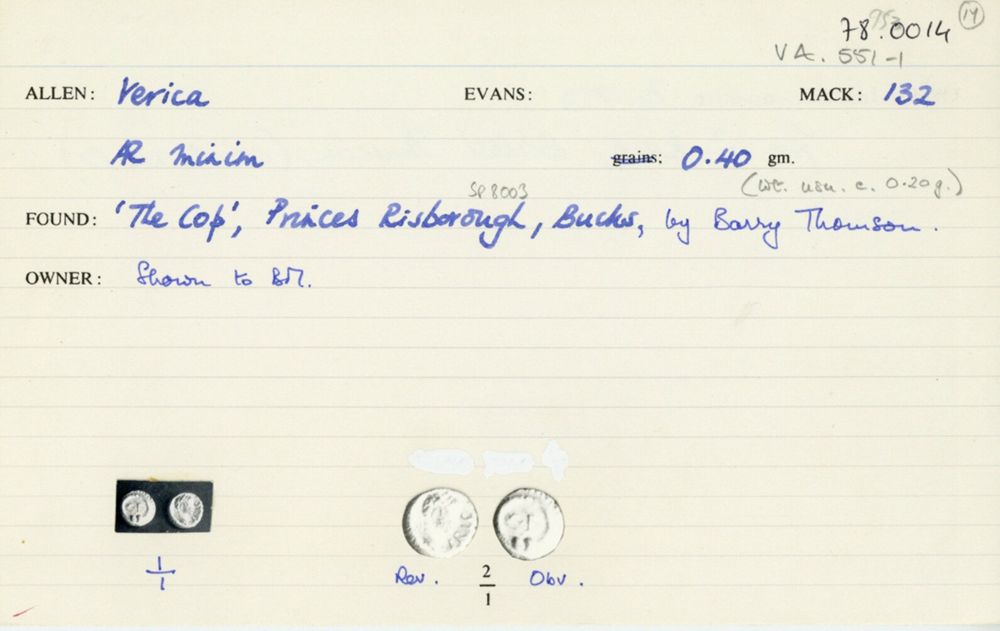 78.0014 14
VA. 551-1
ALLEN: Verica EVANS: MACK: 132
AR minim grains: 0.40 gm.
SP8003 (wt. usu. c. 0.20g.)
FOUND: 'The Cop', Princes Risborough, Bucks, by Barry Thomson.
OWNER: Shown to BM.
1/1
Rev. 2/1 Obv.